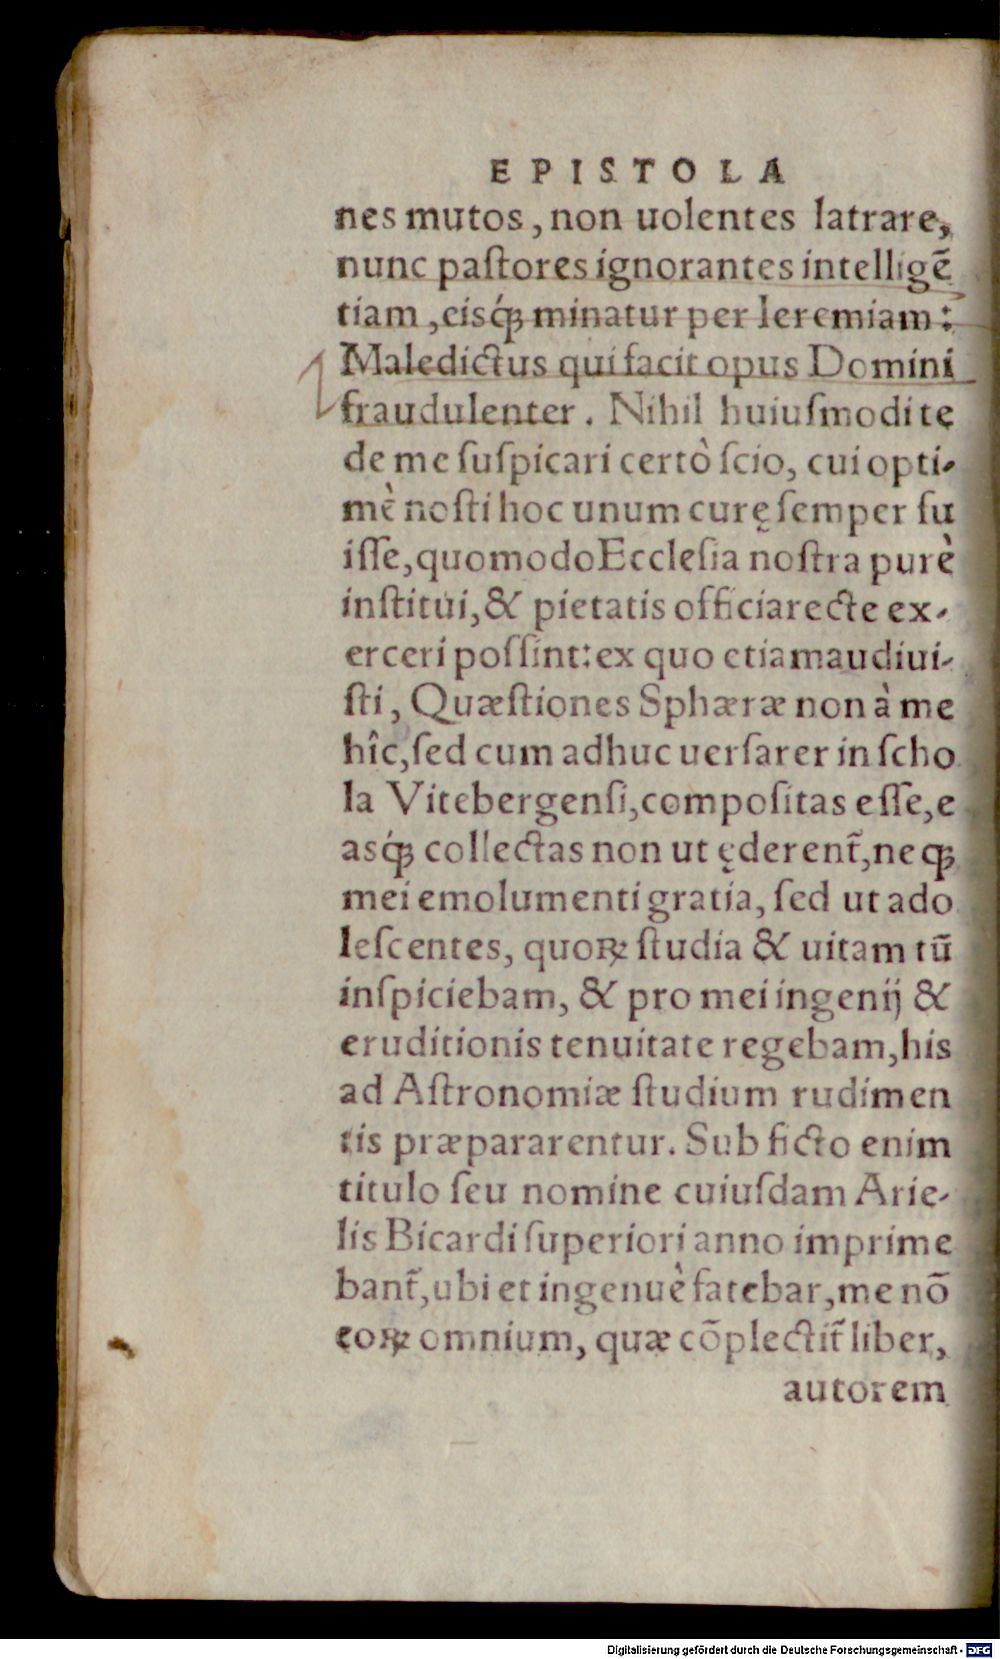 EPISTOLA
nes mutos, non uolentes latrare,
nunc paſtores ignorantes intelligē
tiam, eisq́ꝫ minatur per Ieremiam:
Maledictus qui facit opus Domini
fraudulenter. Nihil huiuſmodi te
de me ſuſpicari certò ſcio, cui opti-
mè noſti hoc unum curę ſemper fu
iſſe, quomodo Eccleſia noſtra purè
inſtitui, & pietatis officia recte ex-
erceri poſſint: ex quo etiam audiui-
ſti, Quæſtiones Sphæræ non à me
hîc, ſed cum adhuc uerſarer in ſcho
la Vitebergenſi, compoſitas eſſe, e
asq́ꝫ collectas non ut ęderent᷑, neqꝫ
mei emolumenti gratia, ſed ut ado
leſcentes, quoꝝ ſtudia & uitam tū
inſpiciebam, & pro mei ingenij &
eruditionis tenuitate regebam, his
ad Aſtronomiæ ſtudium rudimen
tis præpararentur. Sub ficto enim
titulo ſeu nomine cuiuſdam Arie-
lis Bicardi ſuperiori anno imprime
bant᷑, ubi et ingenuè fatebar, me nō
eoꝝ omnium, quæ cōplectit᷑ liber,
autorem
Digitalisierung gefördert durch die Deutsche Forschungsgemeinschaft - DFG